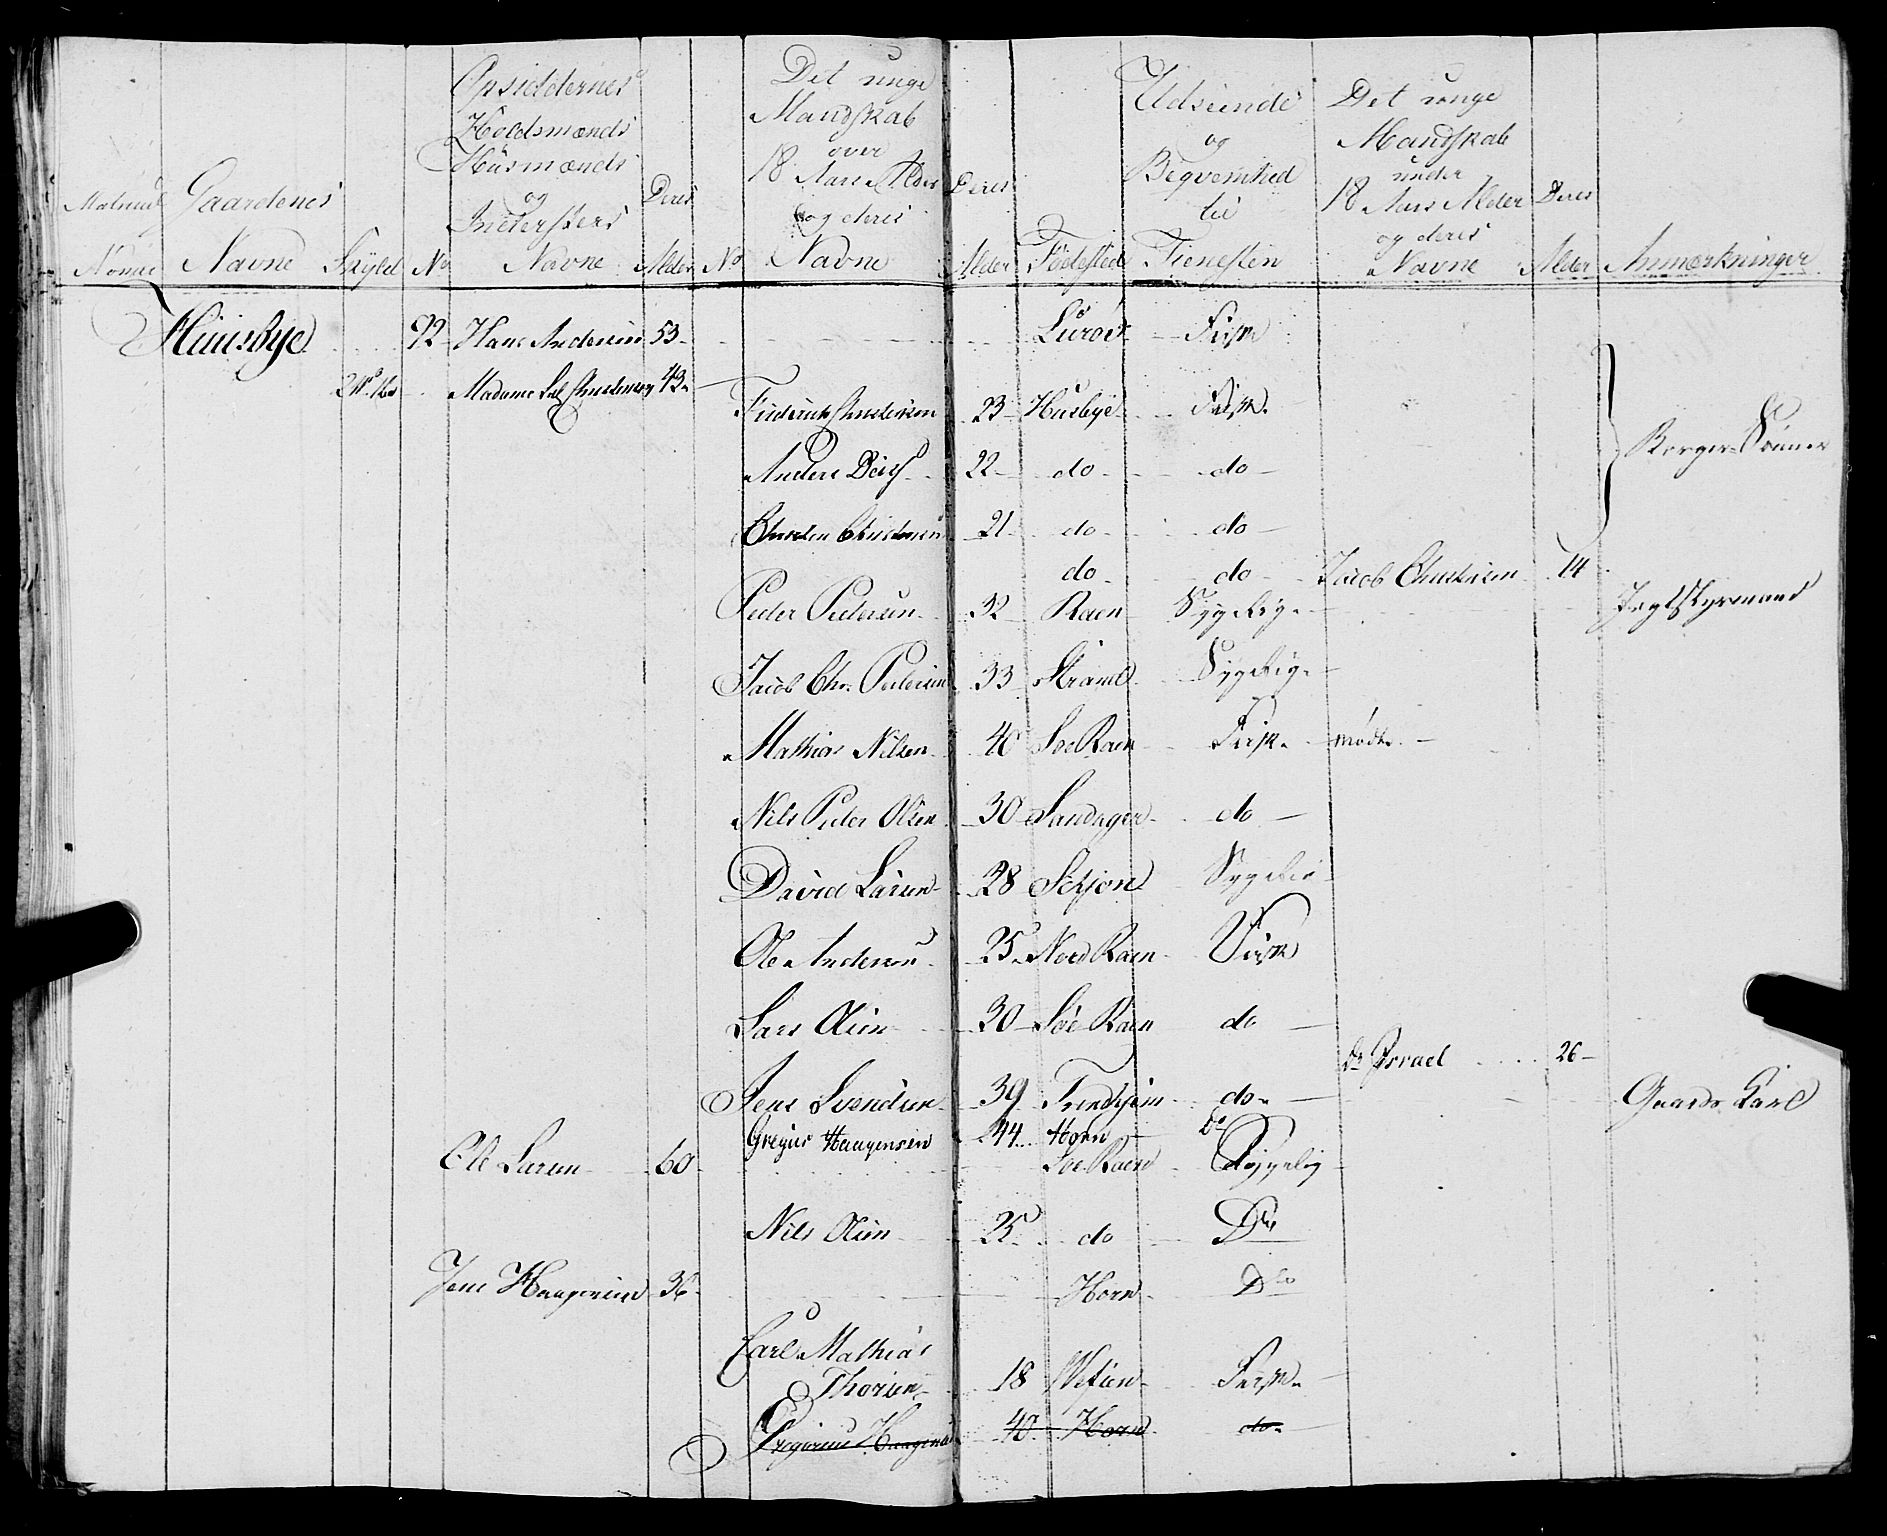 Matricul Nomre
Gaardenes Navne
Skyld
No
Opsiddernes Holdsmænds Huusmænds og Indersters Navne
Deres Alder
No
Det unge Mandskab over 18 Aars Alder og deres Navne
Deres Alder
Fødested
Udseende og Beqvemhed til Tienesten
Det unge Mandskab under 18 Aars Alder og deres Navne
Deres Alder
Anmærkninger
Huusbye 92 Hans Andersen 53 Lurøe Frisk
Madame 43
Friderich Christensen 23 Husbye Frisk
Anders 22 do do
Borger Sønner
Christen Christensen 21 do do
do do Jacob Christensen 14
Peder Pedersen 32 Raen Sygelig Jegtstyrmand
Jacob Chr. Pedersen 33 Sygelig
Mathias Nilsen 40 Søe Raen Frisk mødt
Nils Peder Olsen 30 Sandager do
David Larsen 28 Selsjon Sygelig
Ole Andersen 25 Nord Raen Frisk
Lars Olsen 30 Søe Raen do
Israel 26
Jens Svendsen 39 Trondhjem do Gaards Karl
Gregus Haagensen 44 Horn Do
Ole Larsen 60 Søe Raen Sygelig
Nils Olsen 25 do Do
Jens Haagensen 36 Horn Dto
Carl Mathias
Thorsen 18 Vefsen Frisk
Gregorius Haagensen 40 Horn do